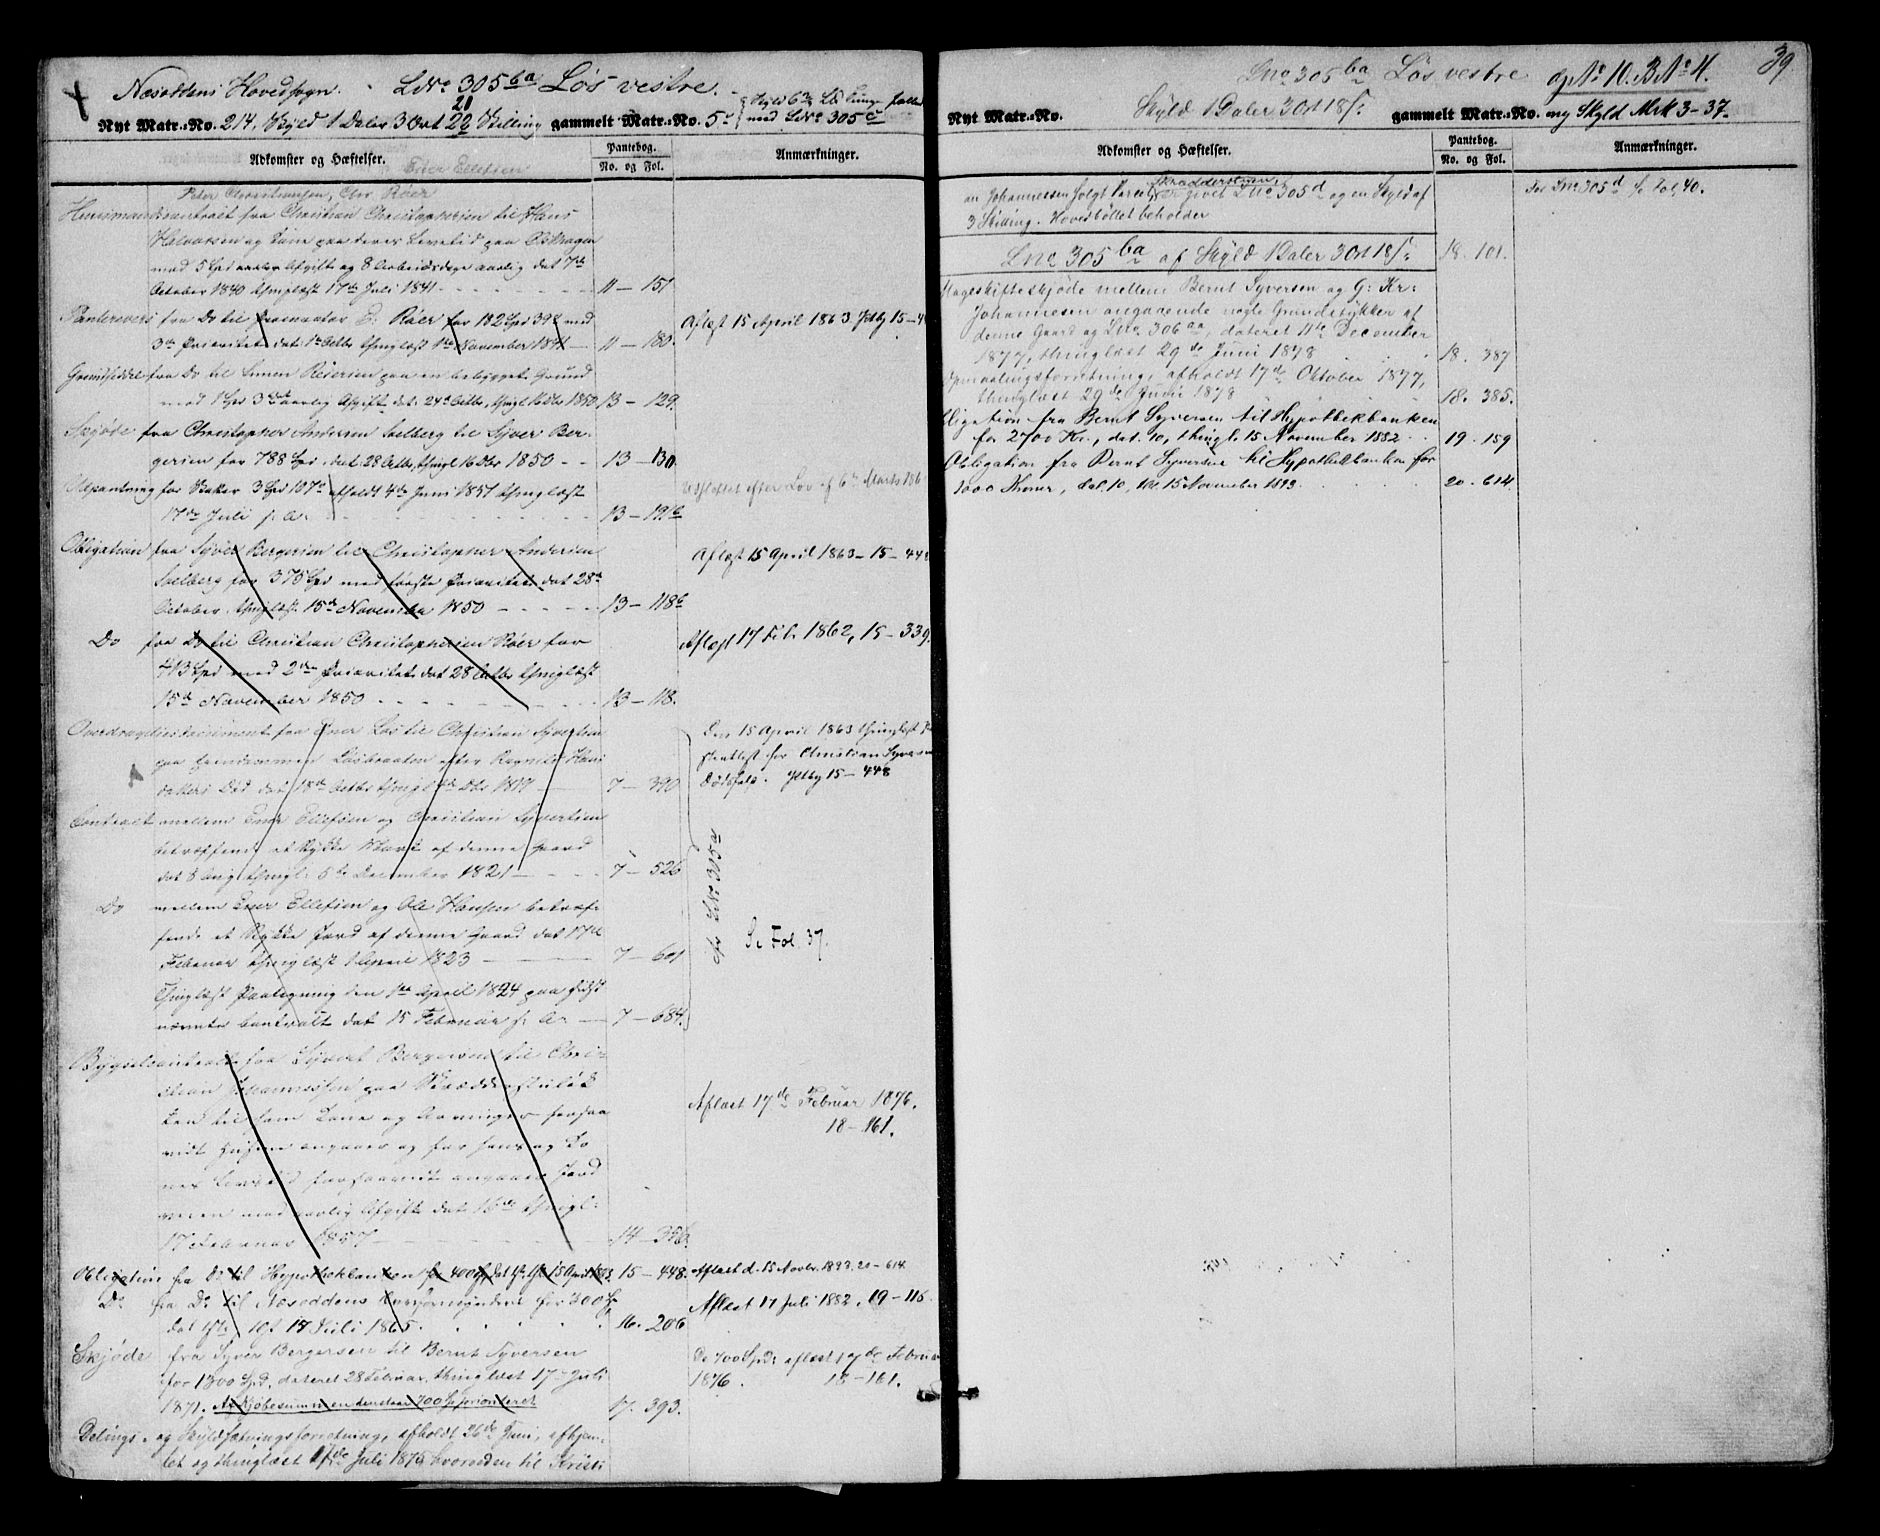 Næsoddens Hovedsogn. - LNo. 305 ba Løs vestre.
21
Nyt Matr.-No. 214. Skyld 1 Daler 3 Ort 22 Skilling gammelt Matr.-No. 5
med LNo. 305 c
Adkomster og Hæftelser.
Pantebog.
No. og Fol.
Anmærkninger.
Ener Ellefsen
Peter Christiansen, Chr Røer
Huusmandscontract fra Christian Christophersen til Hans
Halvorsen og Kone paa deres Levetid paa
med 5 Spd aarlig Afgift og 8 Arbeidsdage aarlig dat 7de
October 1840 thinglæst 17de Juli 1841 11 — 151
Panterevers fra Do til Procurator E. Røer for 182 Spd 39 s med
3die Prioritet dat 1ste Octbr thinglæst 1ste November 1841 — 11 — 180.
Aflæst 15 April 1863 Ptbg 15 — 4
Grundseddel fra Do til Simen Reiersen paa en bebygget Grund
med 1 Spd 3 aarlig Afgift dat. 24de Octbr, thingl 16 Nbr 1850 13 — 129.
Skjøde fra Christopher Andersen Solberg til Syver Ber-
gersen for 788 Spd, dat 28 Octbr, thingl 16 Nbr 1850 - - 13 — 130.
Udpantning for Skatter 3 Spd 107 s afholdt 4de Juni 1857 thinglæst
17de Juli s. A. 13 — 19
Udslettet efter Lov af 6te Marts 186
Obligation fra Syver Bergersen til Christopher Andersen
Solberg for 375 Spd med første Prioritet dat 28de
October, thinglæst 15de November 1850 13 — 118 b
Aflæst 15 April 1863 — 15 — 448
Do fra Do til Christian Christophersen Røer for
413 Spd med 2den Prioritet dat 28 Octbr thinglæst
15de November 1850 13 — 118.
Aflæst 17 Feb. 1862, 15 — 339.
Overdragelsesdocument fra Ener Løs til Christian Syvertsen
paa Eiendommen Løsbraaten efter Ragnild Hans
datters Død dat 18de Octbr thingl Dbr 1819 7 — 390
Den 15 April 1863 thinglæst
for Christian Syversens
Dødsfald. Ptbg 15 — 448
Contract mellem Ener Ellefsen og Christian Syvertsen
betræffende et Stykke Mark af denne Gaard
dat 5 Aug thingl. 5de December 1821 — 7 — 526
Do mellem Ener Ellefsen og Ole Hansen betræf-
fende et Stykke Jord af denne Gaard dat 17de
Februar thinglæst 1 April 1823 7 — 601
af LNo 305 a
Se Fol. 37.
Thinglæst Paategning den 1ste April 1824 paa sidst
nævnte Contract dat 15 Februar s. Ar — 7 — 684.
Bygselcontract fra Syvert Bergersen til Chri-
stian Johannessen paa
ken til dem Kone og Arvinger forsaa
vidt Husene angaaer og for hans og Ko
nes Levetid forsaavidt angaaer Jord
veien mod aarlig Afgift dat 16de thingl.
17 Februar 1857 14 — 356
Aflæst 17de Februar 1876.
18 — 161.
Obligation fra Do til Hypothekbanken for 400 Spd, dat thgl. 15 April 1863. 15 — 448.
Aflæst d. 15 Novbr. 1893. 20 — 614
Do fra Do til Næsoddens Overformynderi for 300 Spd
dat 10 17 Juli 1865. 16. 206
Aflæst 17 Juli 1882, 19 — 116
Skjøde fra Syver Bergersen til Bernt Syversen
for 1300 Spd, dateret 28 Februar, thinglæst 17 Juli
1871. Af Kjøbesummen indestaar 700 Sp prioriteret 17. 393.
De 700 Spd: aflæst 17de Februar
1876. 18 — 161.
Delings- og Skyldsætningsforretning, afholdt 26de Juni, afhjem-
let og thinglæst 17de Juli 1875 hvorved en til Kristi
Lno 305 ba Løs vestre GNo 10. BNo 4.
39
Skyld 1 Daler 3 Ort 18 s:
Nyt Matr.-No. gammelt Matr.-No. ny Skyld Mrk 3-37.
Adkomster og Hæftelser.
Pantebog.
No. og Fol.
Anmærkninger.
Skrædderstuen
an Johannesen solgt Parcel, er givet LNo 305 d og en Skyld af
3 Skilling. Hovedbøllet beholder
For Lno 305 d se Fol. 40.
Lno 305 ba af Skyld 1 Daler 3 Ort 18 s: 18. 101.
Mageskifteskjøde mellem Bernt Syversen og G. Kr:
Johannesen angaaende nogle Grundstykker af
denne Gaard og LNo. 306 aa, dateret 11te December
1877, thinglæst 29de Juni 1878 18. 387
Opmaalingsforretning, afholdt 17de Oktober 1877,
thinglæst 29de Juni 1878 18. 385.
Obligation fra Bernt Syversen til Hypothekbanken
for 2700 Kr., dat. 10, thingl. 15 November 1882 19. 159
Obligation fra Bernt Syversen til Hypothekbanken for
1000 Kroner, dat. 10, thl. 15 November 1893. 20. 614.